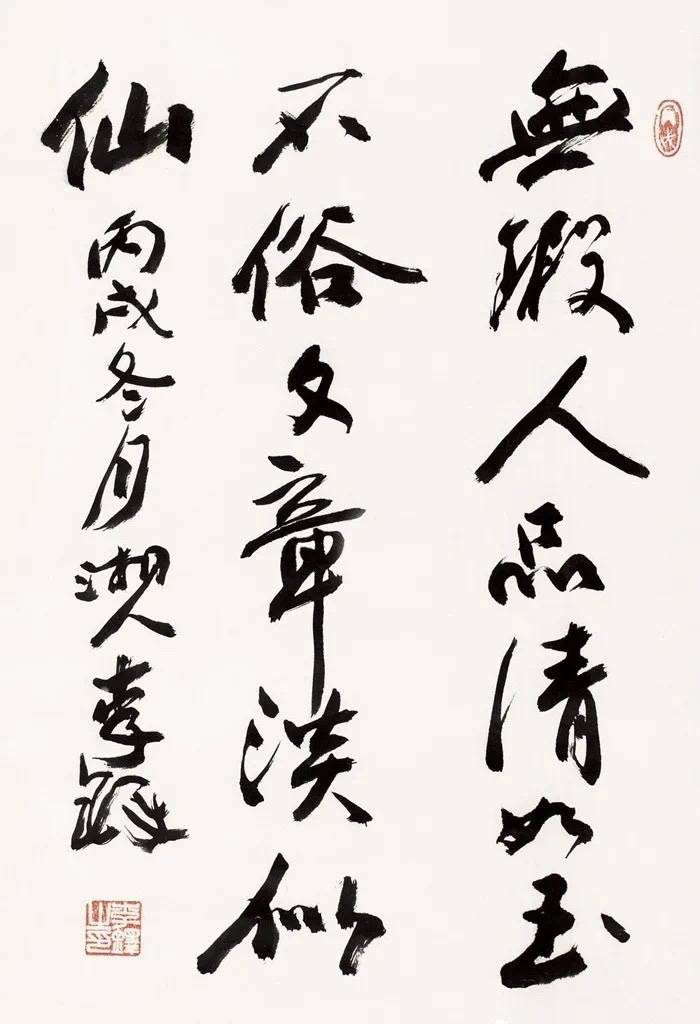 無瑕人品清如玉
不俗文章淡似
仙
丙戌冬月湘人李鐸
李鐸之印